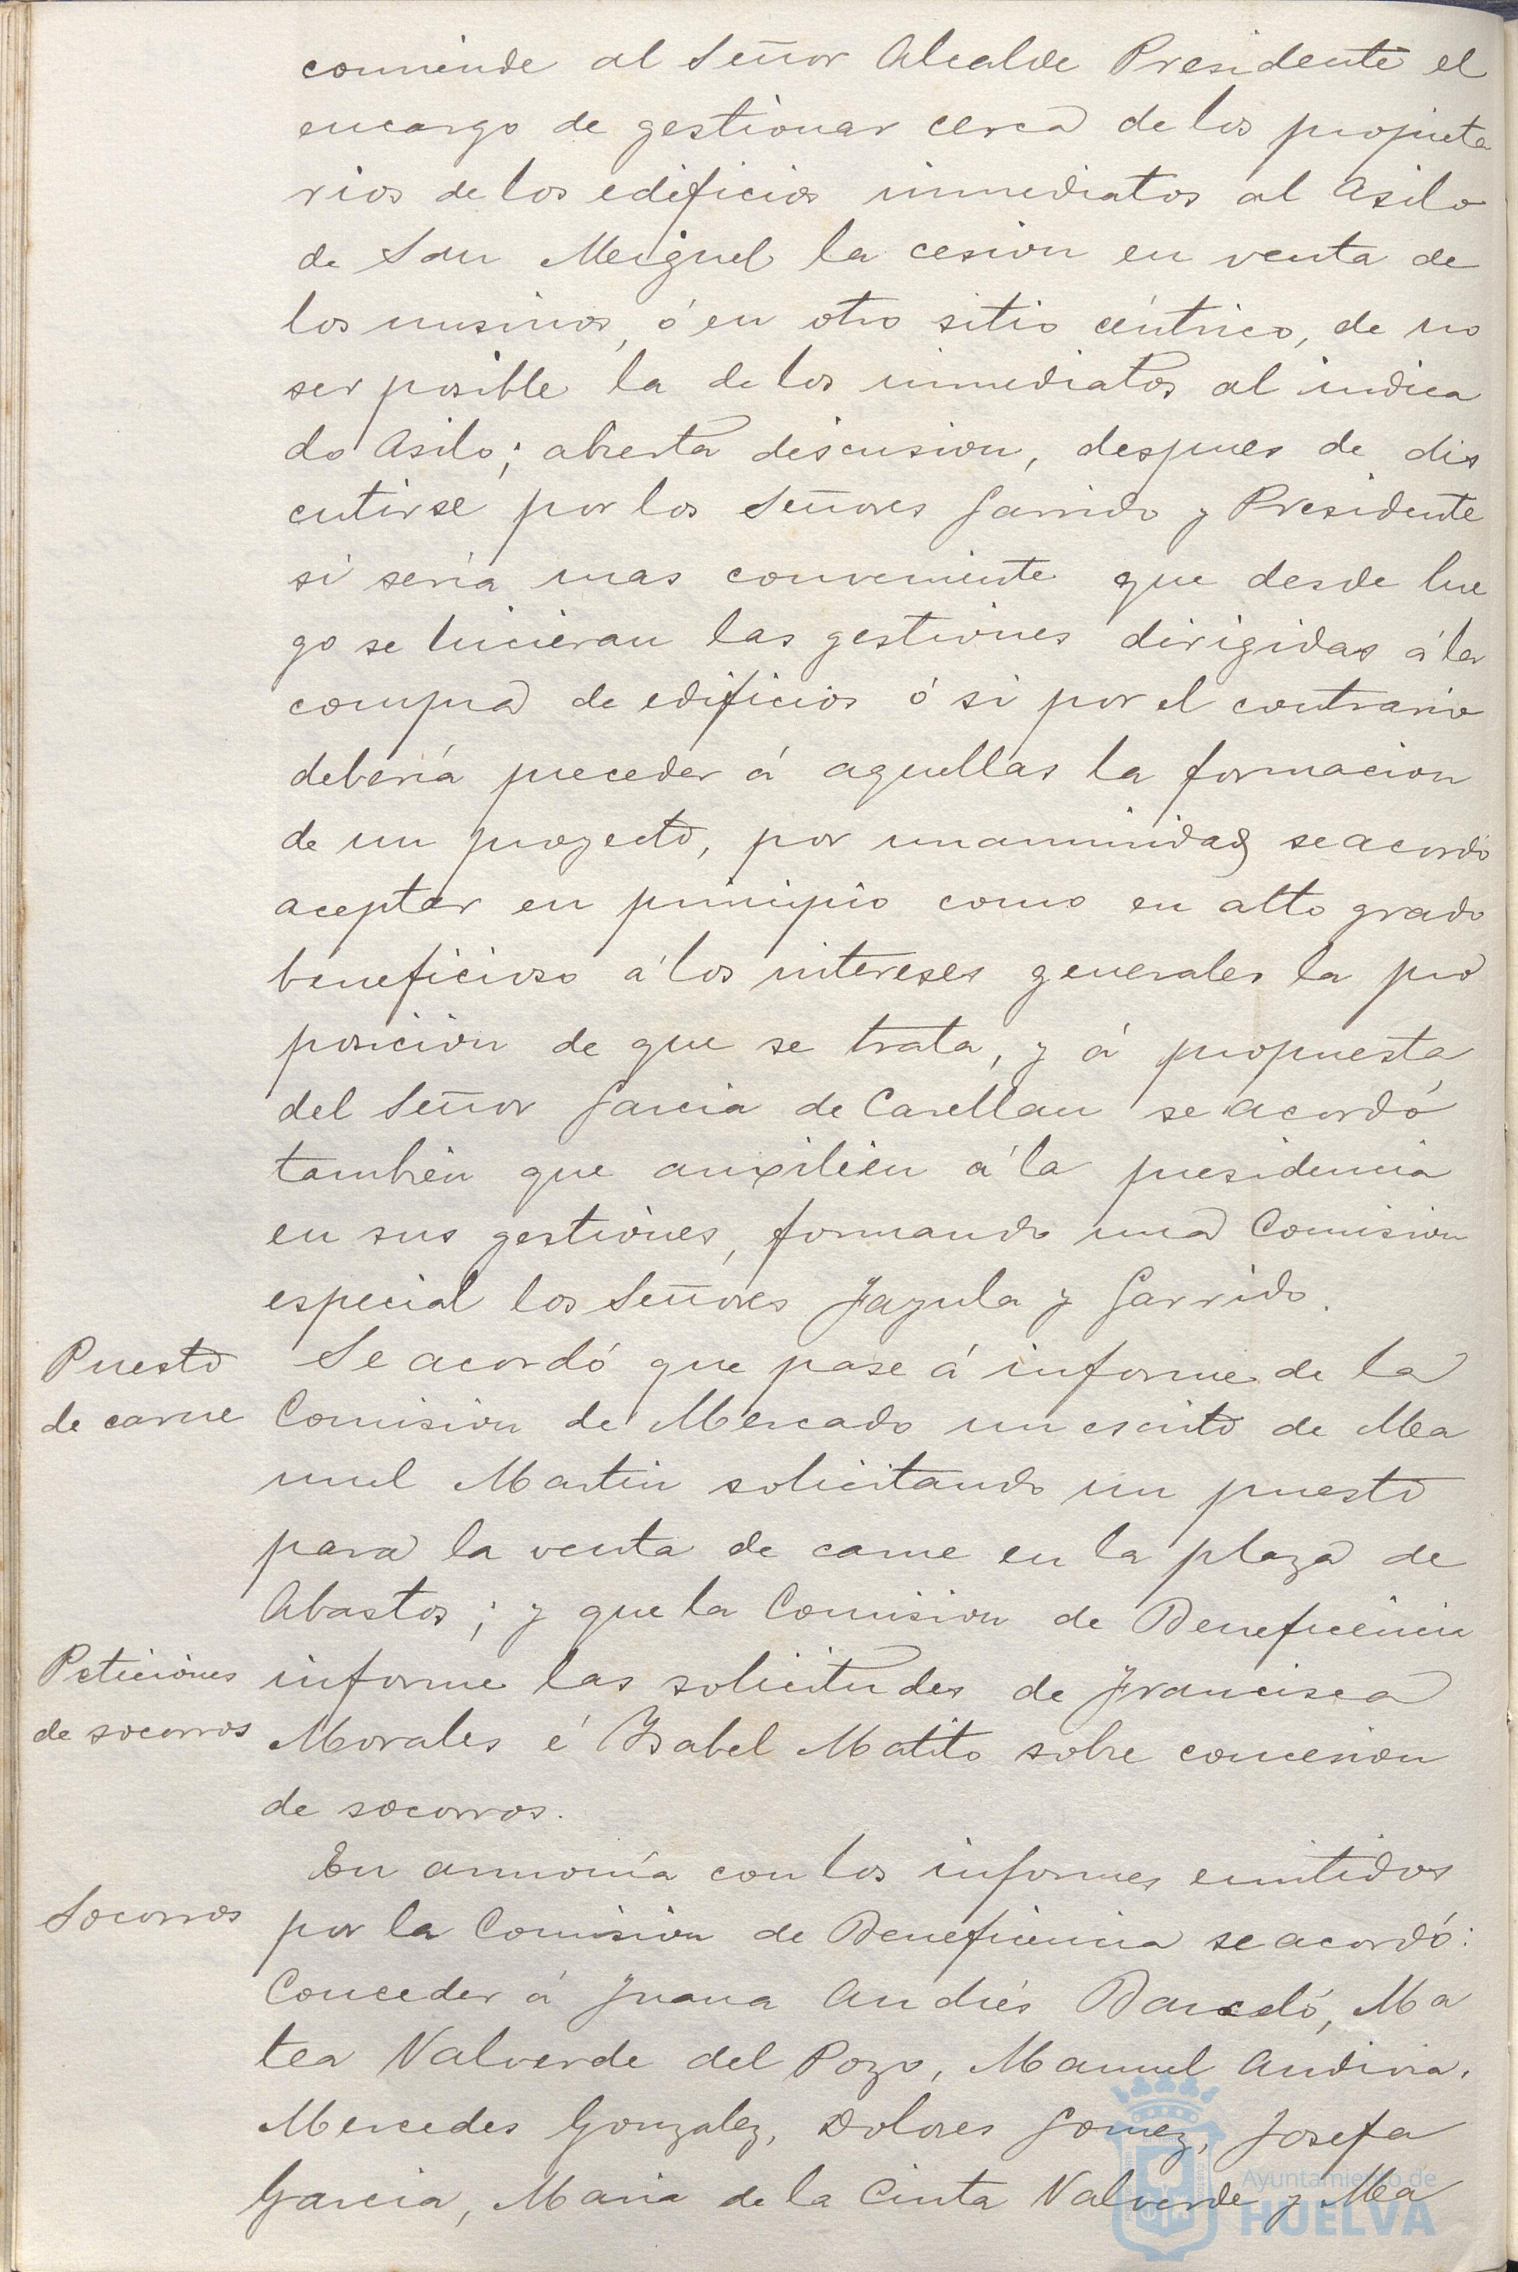 comiende al Señor Alcalde Presidente el
encargo de gestionar cerca de los propieta
rios de los edificios inmediatos al Asilo
de San Miguel la cesion en venta de
los mismos, ó en otro sitio céntrico, de no
ser posible la de los inmediatos al indica
do Asilo; abierta discusion, despues de dis
cutirse por los Señores Garrido y Presidente
si sería mas conveniente que desde lue
go se hicieran las gestiones dirigidas á la
compra de edificios ó si por el contrario
debería preceder á aquellas la formacion
de un proyecto, por unanimidad se acordó
aceptar en principio como en alto grado
beneficioso á los intereses generales la pro
posicion de que se trata, y á propuesta
del Señor Garcia de Casellan se acordó
también que auxilien á la presidencia
en sus gestiones, formando una Comision
especial los Señores Jazula y Garrido.
Puesto
de carne
Se acordó que pase á informe de la
Comision de Mercado un escrito de Ma
nuel Martin solicitando un puesto
para la venta de carne en la plaza de
Abastos; y que la Comision de Beneficencia
Peticiones
de socorros
informe las solicitudes de Francisca
Morales é Ysabel Matito sobre concesion
de socorros.
Socorros
En armonía con los informes emitidos
por la Comision de Beneficencia se acordó:
Conceder á Juana Andrés Barceló, Ma
tea Valverde del Pozo, Manuel Andivia,
Mercedes Gonzalez, Dolores Gomez, Josefa
Garcia, Maria de la Cinta Valverde y Ma
Ayuntamiento de
HUELVA